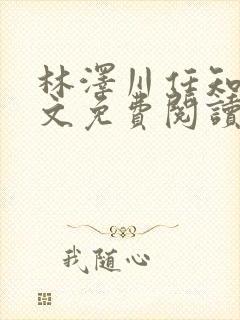 林澤川任知
文免費閱讀
我随心